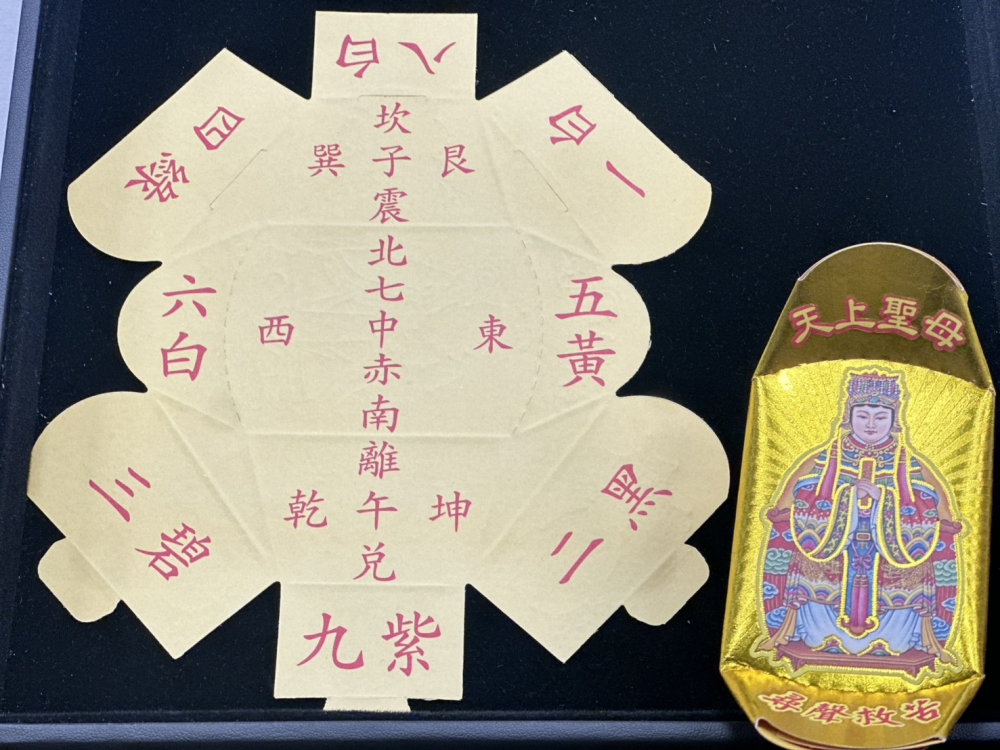 八白
四綠
一白
坎
巽 子 艮
震
北
七
六白
西 中 東
五黃
赤
南
離
乾 午 坤
兌
三碧
二黑
九紫
天上聖母
尋聲救苦